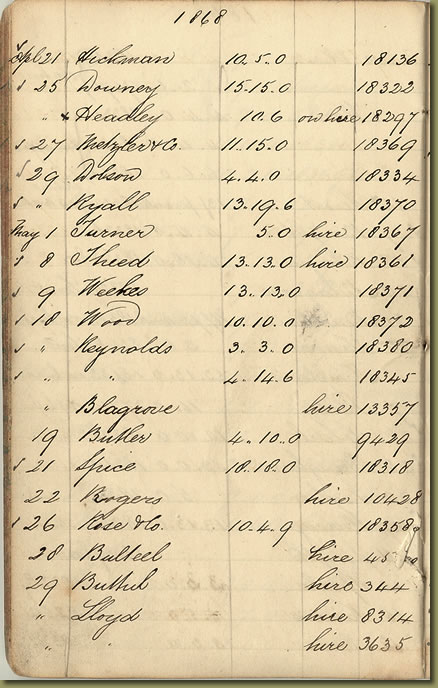 1868
Apl 21 Hickman 10.5.0 18136
s 25 Downey 15.15.0 18322
" x Headley 10.6 on hire 18297
s 27 Metzler & Co. 11.15.0 18369
s 29 Dobson 4.4.0 18334
s " Ryall 13.19.6 18370
May 1 Turner 5.0 hire 18367
s 8 Theed 13.13.0 hire 18361
s 9 Weekes 13.13.0 18371
s 18 Wood 10.10.0 18372
s " Reynolds 3.3.0 18380
s " " 4.14.6 18345
" Blagrove hire 13357
19 Butler 4.10.0 9429
s 21 Spice 18.18.0 18318
22 Rogers hire 10428
s 26 Rose & Co. 10.4.9 18358
28 Bulteel hire
29 hire 344
" Lloyd hire 8314
" " hire 3635